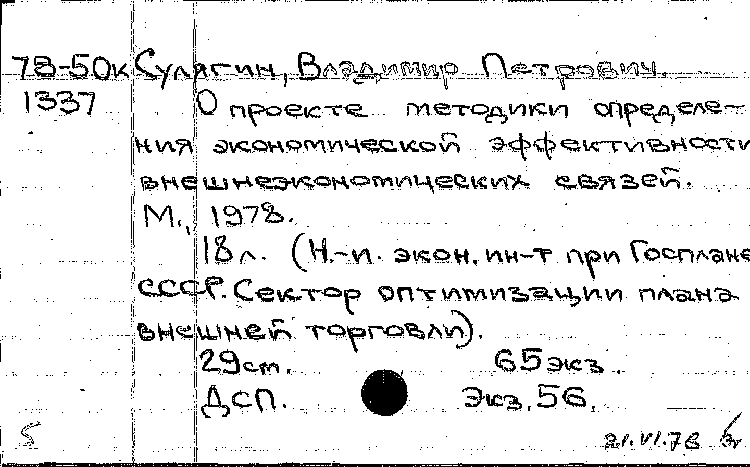 78-50к Сулягин, Владимир Петрович.
1337 О проекте методики определе-
ния экономической эффективности
внешнеэкономических связей.
М., 1978.
18 л. (Н.-и. экон. ин-т при Госплане
СССР. Сектор оптимизации плана
внешней торговли).
29 см. 65 экз.
ДСП. Экз. 56.
5 21.VI.78